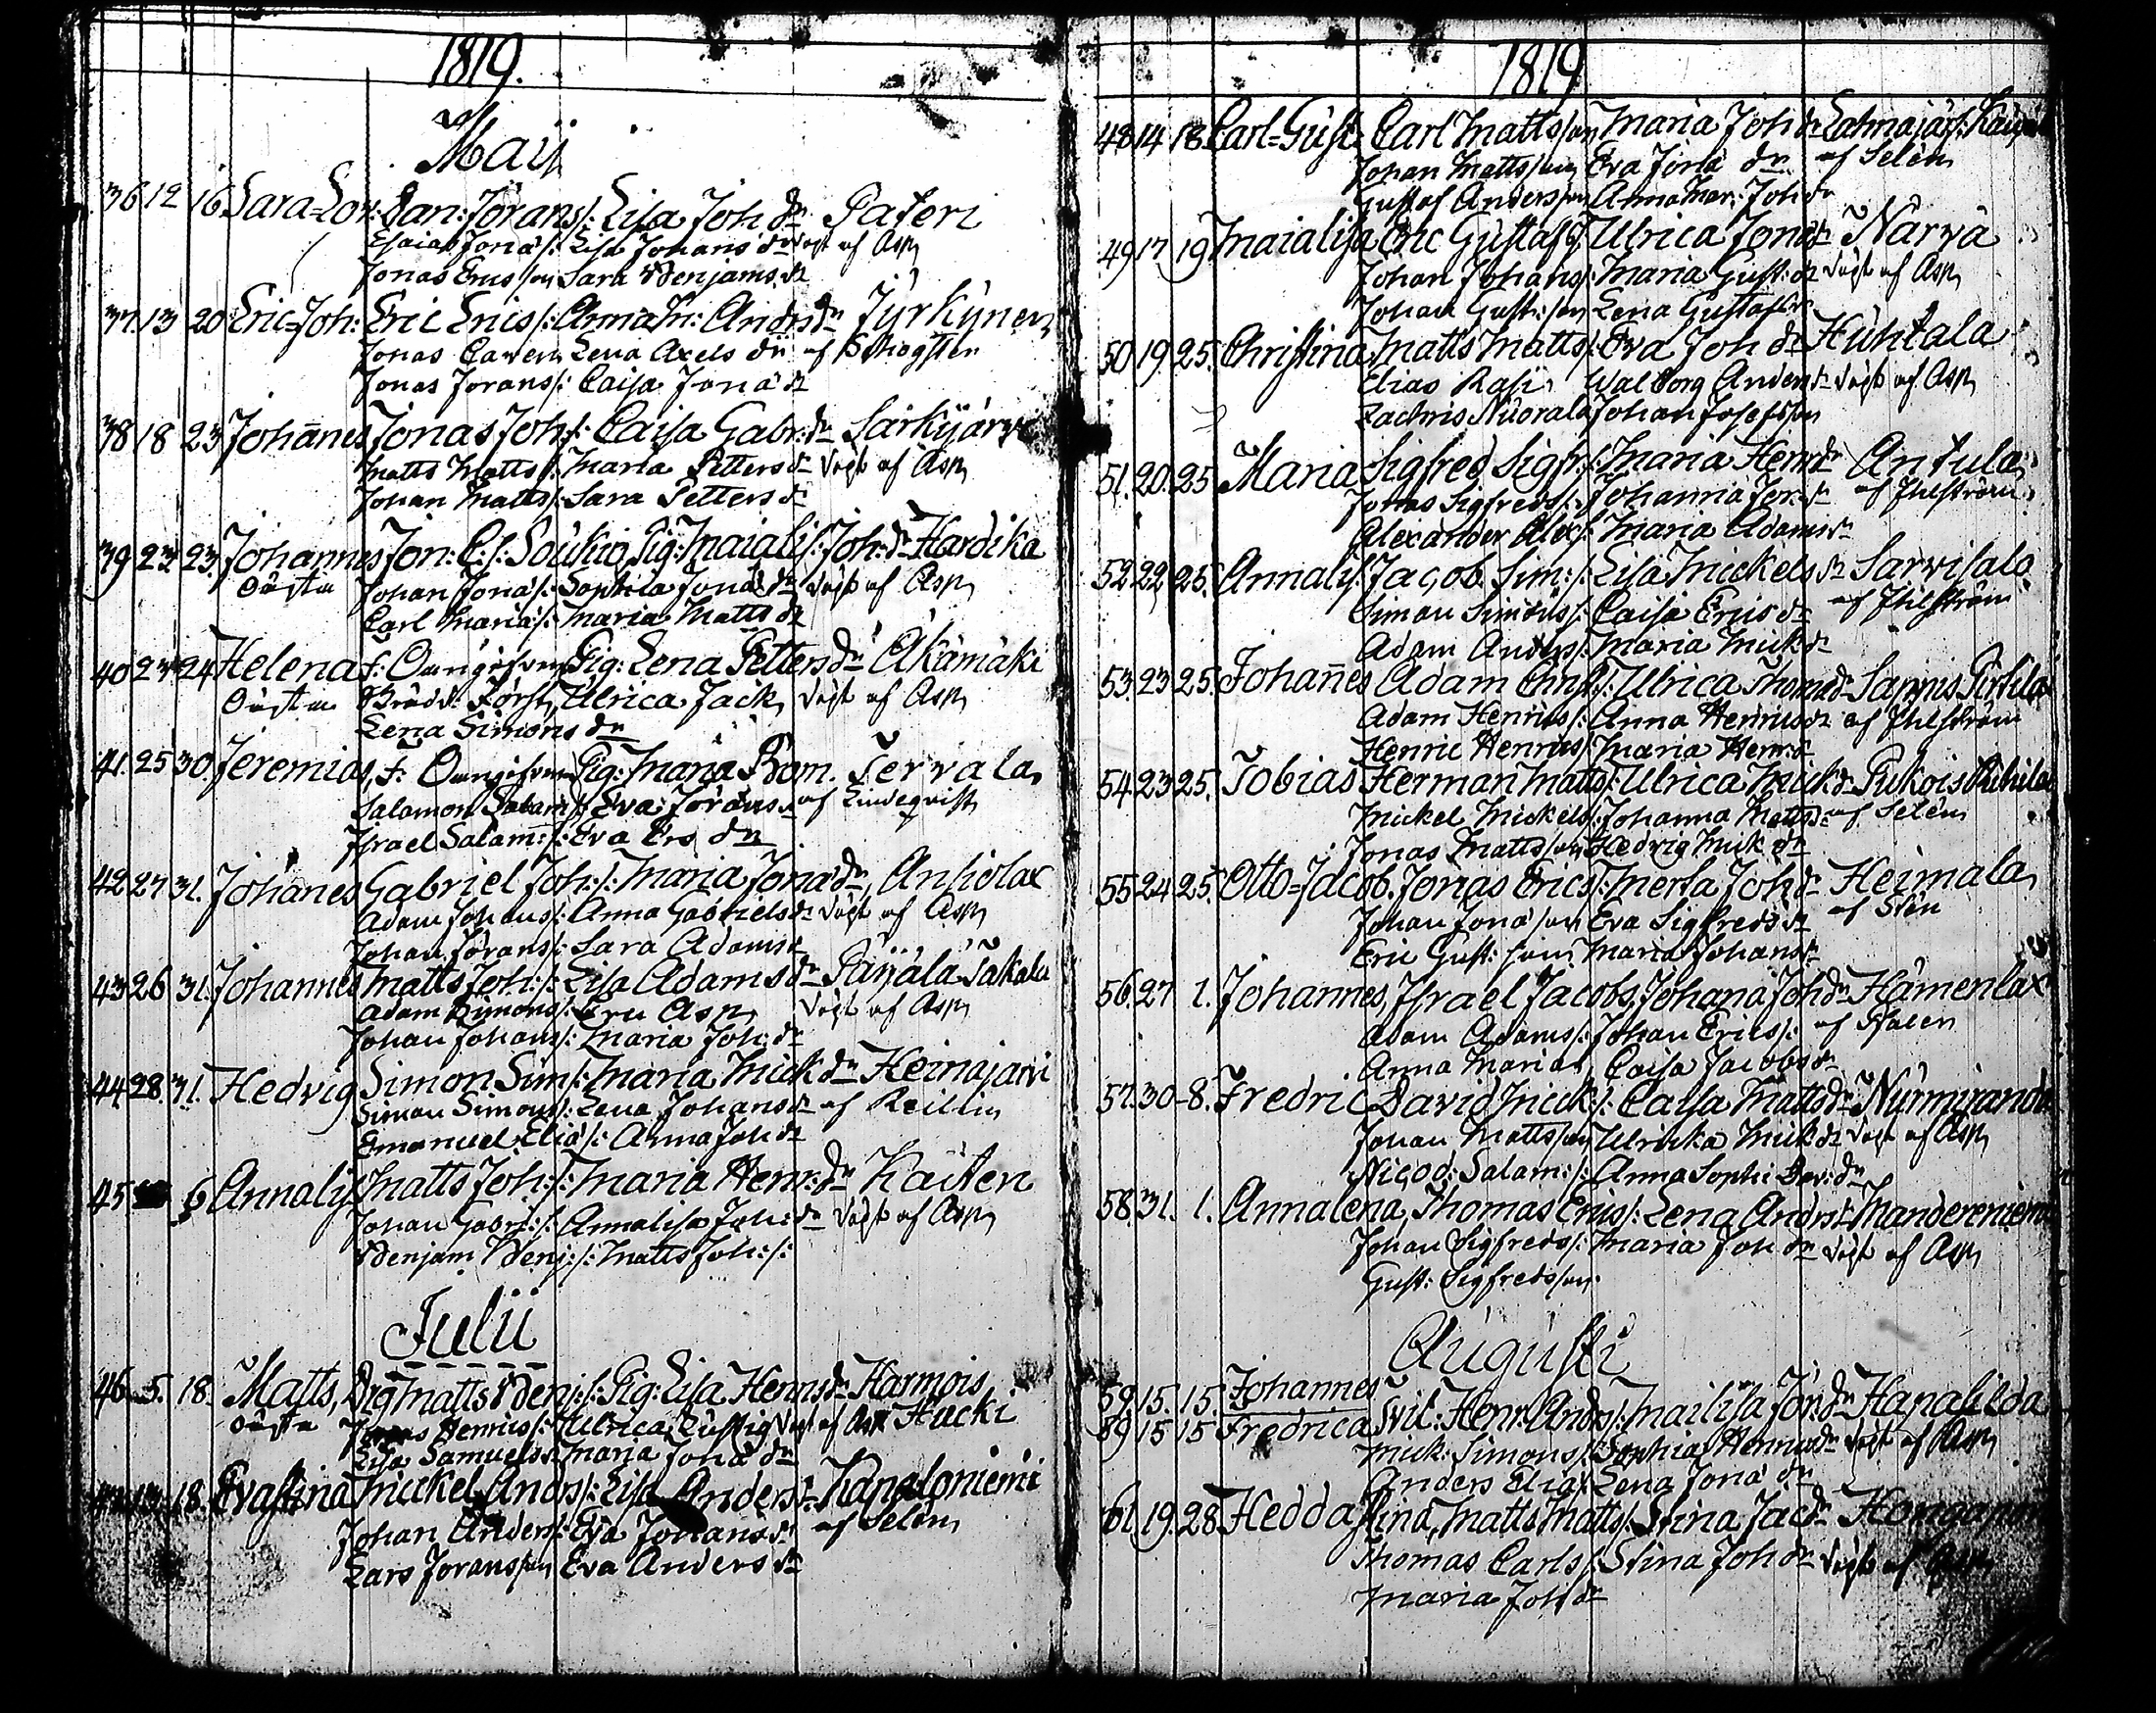 1819.
Maij
36 12 16 Sara=Lov: Dan: Jörans/: Lisa Joh dr Pateri
Esaias Jona/: Lisa Johans dr döpt af Asp
Jonas Ericsson Sara Benjams dr
37 13 20 Eric=Joh: Eric Erics/: Anna Andrs dr Jyrkynen
Jonas Caven Lena Axels dr af
Jonas Jorans/: Caisa Jona dr
38 18 23 Johannes Jonas Joh/: Caisa Gabr: dr Särkijärvi
Matts Matts/: Maria Petters dr döpt af Asp
Johan Matts/: Sara Petters dr
39 22 23. Johannes Jon: C:/: Soukio, Pig: Maialis/: Joh: dr Hardika
Oäkta Johan Jona/: Sophia Jona dr döpt af Asp
Carl Maria/: Maria Matts dr
40 23 24 Helena f: Oangifven Pig: Lena Petters dr Äkämäki
Oäkta Forst, Ulrica Jack, döpt af Asp
Lena Simons dr
41. 25 30 Jeremias, f: Oangifven Pig: Maria Bom. Tervala
Salamon Salam/: Eva Jörans dr af Lindeqvist
Israel Salam:/: Eva Ers dr
42 27 31. Johanes Gabriel Joh:/: Maria Jona dr, Ansiolax
Adam Johans/: Anna Gabriels dr döpt af Asp
Johan Jörans/: Sara Adams dr
43 26 31. Johannes Matts Joh:/: Lisa Adams dr Päijälä Takala
Adam Simons/: Eric Asp döpt af Asp
Johan Johans/: Maria Joh: dr
44 28. 31. Hedvig Simon Sim/: Maria Mick dr Heinajärvi
Simon Simons/: Lena Johans dr af Reillin
Emanuel Elia/: Anna Joh dr
45 6 Annalis Matts Joh:/: Maria Henr: dr Kaiten
Johan Gabr:/: Annalisa Joh: dr döpt af Asp
Benjam Benj:/: Matts Joh:/:
Julii
46 5. 18. Matts, Drg Matts Benj:/: Pig: Lisa Henrs dr Harmois
Oäkta Jonas Henrics/: Ulrica Lustig döpt af Asp Hucki
Lisa Samuels dr Maria Jona dr
18. Evastina Mickel Andrs/: Lisa Anders dr Kanaloniemi
Johan Anders/: Eva Johans dr af Selén
Lars Joransson Eva Anders dr
1819
48 14 18 Carl=Gust: Carl Mattsson Maria Joh dr
Johan Mattsson Eva Jona dr af Selén
Gustaf Andersson Anna Mar: Joh dr
49 17 19 Maialisa Eric Gustafs/: Ulrica Jona dr Närvä
Johan Johans/: Maria Gust: dr döpt af Asp
Johan Gust:son Lena Gustafs dr
50 19. 25. Christina Matts Matts/: Eva Joh dr Huhtala
Elias Rasi Walborg Anders dr döpt af Asp
Zachris Nuorala Johan Josefsson
51. 20. 25 Maria Sigfred Sigfr:/: Maria Henr dr Antula
Jonas Sigfreds/: Johanna Jor: dr af Ihlström
Alexander Alex/: Maria Adams dr
52. 22 25. Annalis/: Jacob Sim:/: Lisa Mickels dr Sarvisalo
Simon Simons/: Caisa Erics dr af Ihlström
Adam Anders/: Maria Mick dr
53. 23 25. Johannes Adam Christ/: Ulrica Thoms dr Pirtilä
Adam Henrics/: Anna Henrics dr af Ihlström
Henric Henrics/: Maria Henr: dr
54. 23 25. Tobias Herman Matts/: Ulrica Mick dr Pukois
Mickel Mickels/: Johanna Matts dr af Selén
Jonas Mattsson Hedvig Mick dr
55 24 25. Otto=Jacob. Jonas Erics/: Merta Joh dr Heimala
Johan Jonason Eva Sigfreds dr af Stén
Eric Gust:son Maria Johans dr
56. 27 1. Johannes, Israel Jacobs, Johana Joh dr Hämenläx
Adam Adams/: Johan Erics/: af
Anna Maria, Caisa Jacobs dr
57. 30 8. Fredric David Mick:/: Caisa Matts dr Nurmiranda
Johan Mattsson Ulricka Mick dr döpt af Asp
Nicod: Salam:/: Anna Sophi Dav: dr
58. 31. 1. Annalena, Thomas Erics/: Lena Andrs dr Mandereniemi
Johan Sigfreds/: Maria Joh dr döpt af Asp
Gust: Sigfredsson
Augusti
59. 15. 15. Johannes
59 15 15 Fredrica Tvil: Henr: Andrs/: Mailisa Jör: dr
Mick: Simons/: Sophia Henrics dr döpt af Asp
Anders Elia/: Lena Jona dr
61. 19. 28 Heddastina, Matts Matts/: Stina Jac dr
Thomas Carls/: Stina Joh dr döpt af Asp
Maria Joh dr